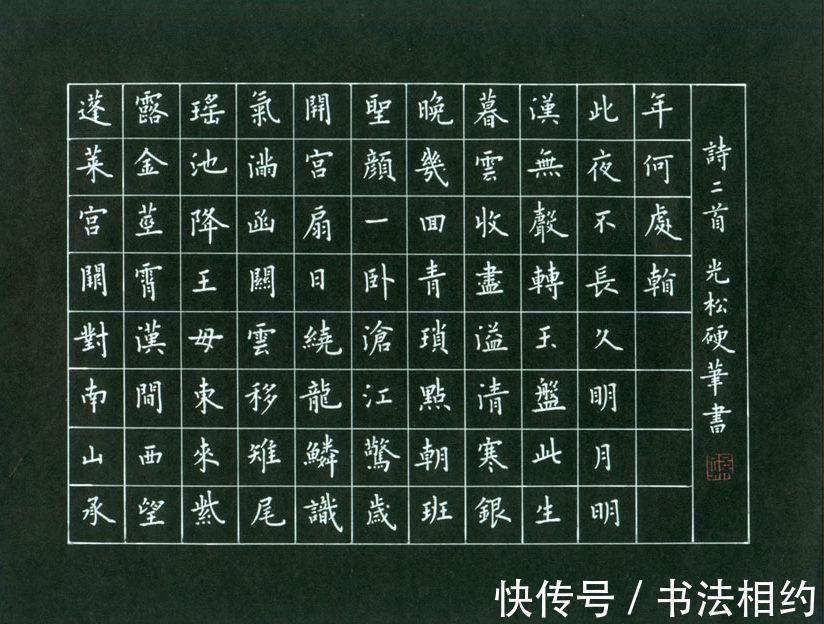 蓬萊宮闕對南山承
露金莖霄漢間西望
瑤池降王母東來紫
氣滿函關雲移雉尾
開宮扇日繞龍鱗識
聖顏一卧滄江驚歲
晚幾回青瑣點朝班
暮雲收盡溢清寒銀
漢無聲轉玉盤此生
此夜不長久明月明
年何處
詩二首 光松硬筆書
快传号 / 书法相约